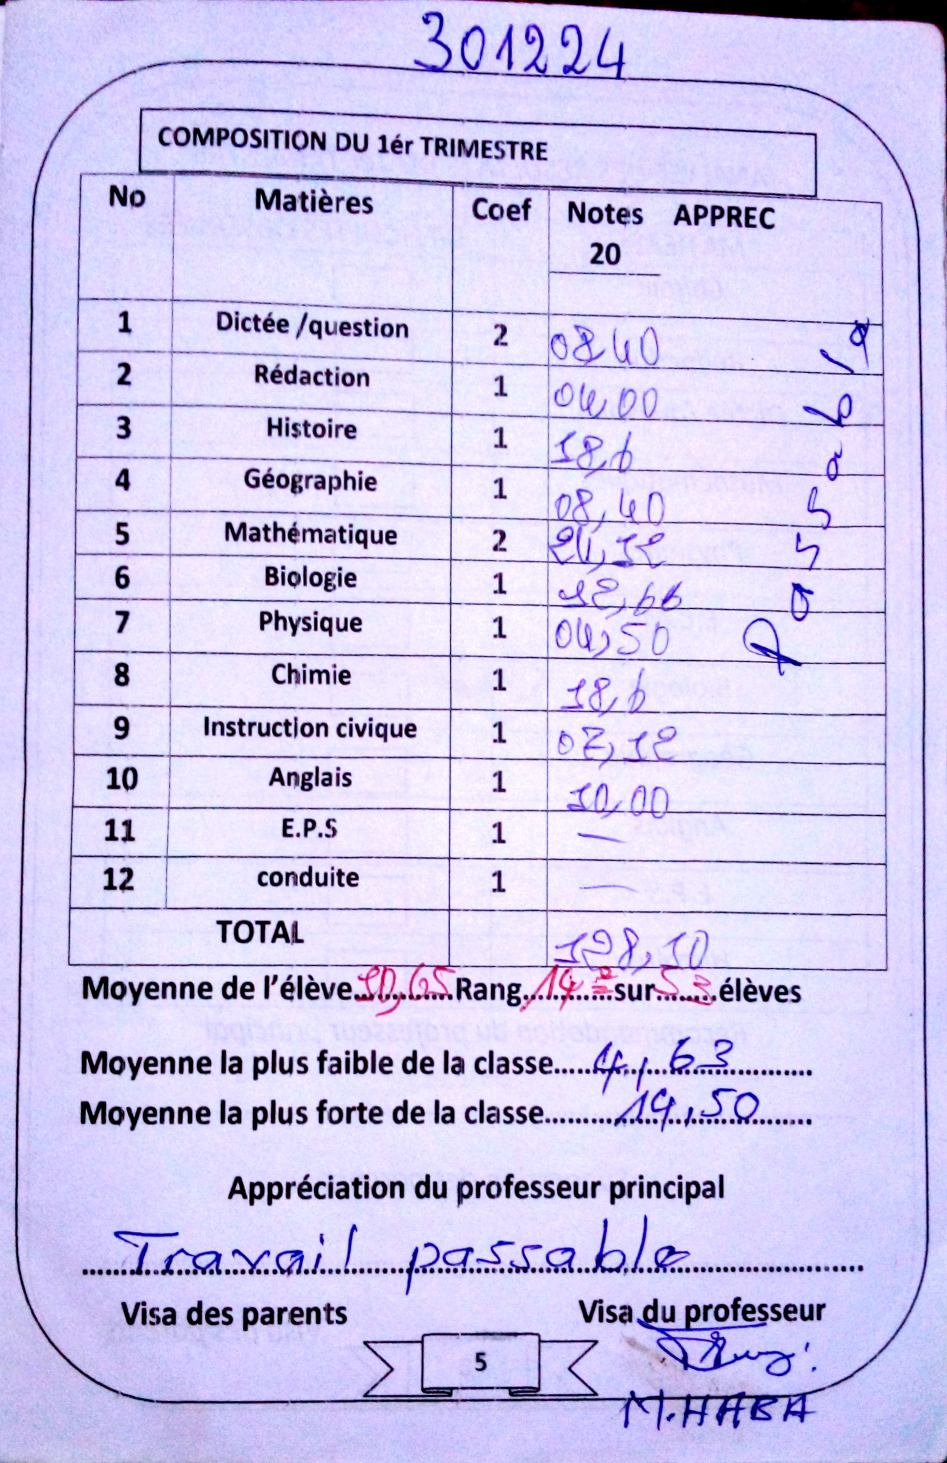 301224
COMPOSITION DU 1ér TRIMESTRE
No Matières Coef Notes APPREC
20
1 Dictée /question 2 08,40
2 Rédaction 1 04,00
3 Histoire 1 18,6
4 Géographie 1 08,40
5 Mathématique 2 24,12
6 Biologie 1 12,66
7 Physique 1 04,50
8 Chimie 1 18,6
9 Instruction civique 1 07,12
10 Anglais 1 10,00
11 E.P.S 1 —
12 conduite 1 —
Passable
TOTAL 128,10
Moyenne de l'élève 10,65 Rang 14e sur 53 élèves
Moyenne la plus faible de la classe.....4,63
Moyenne la plus forte de la classe.....14,50
Appréciation du professeur principal
Travail passable
Visa des parents Visa du professeur
5
M.HABA